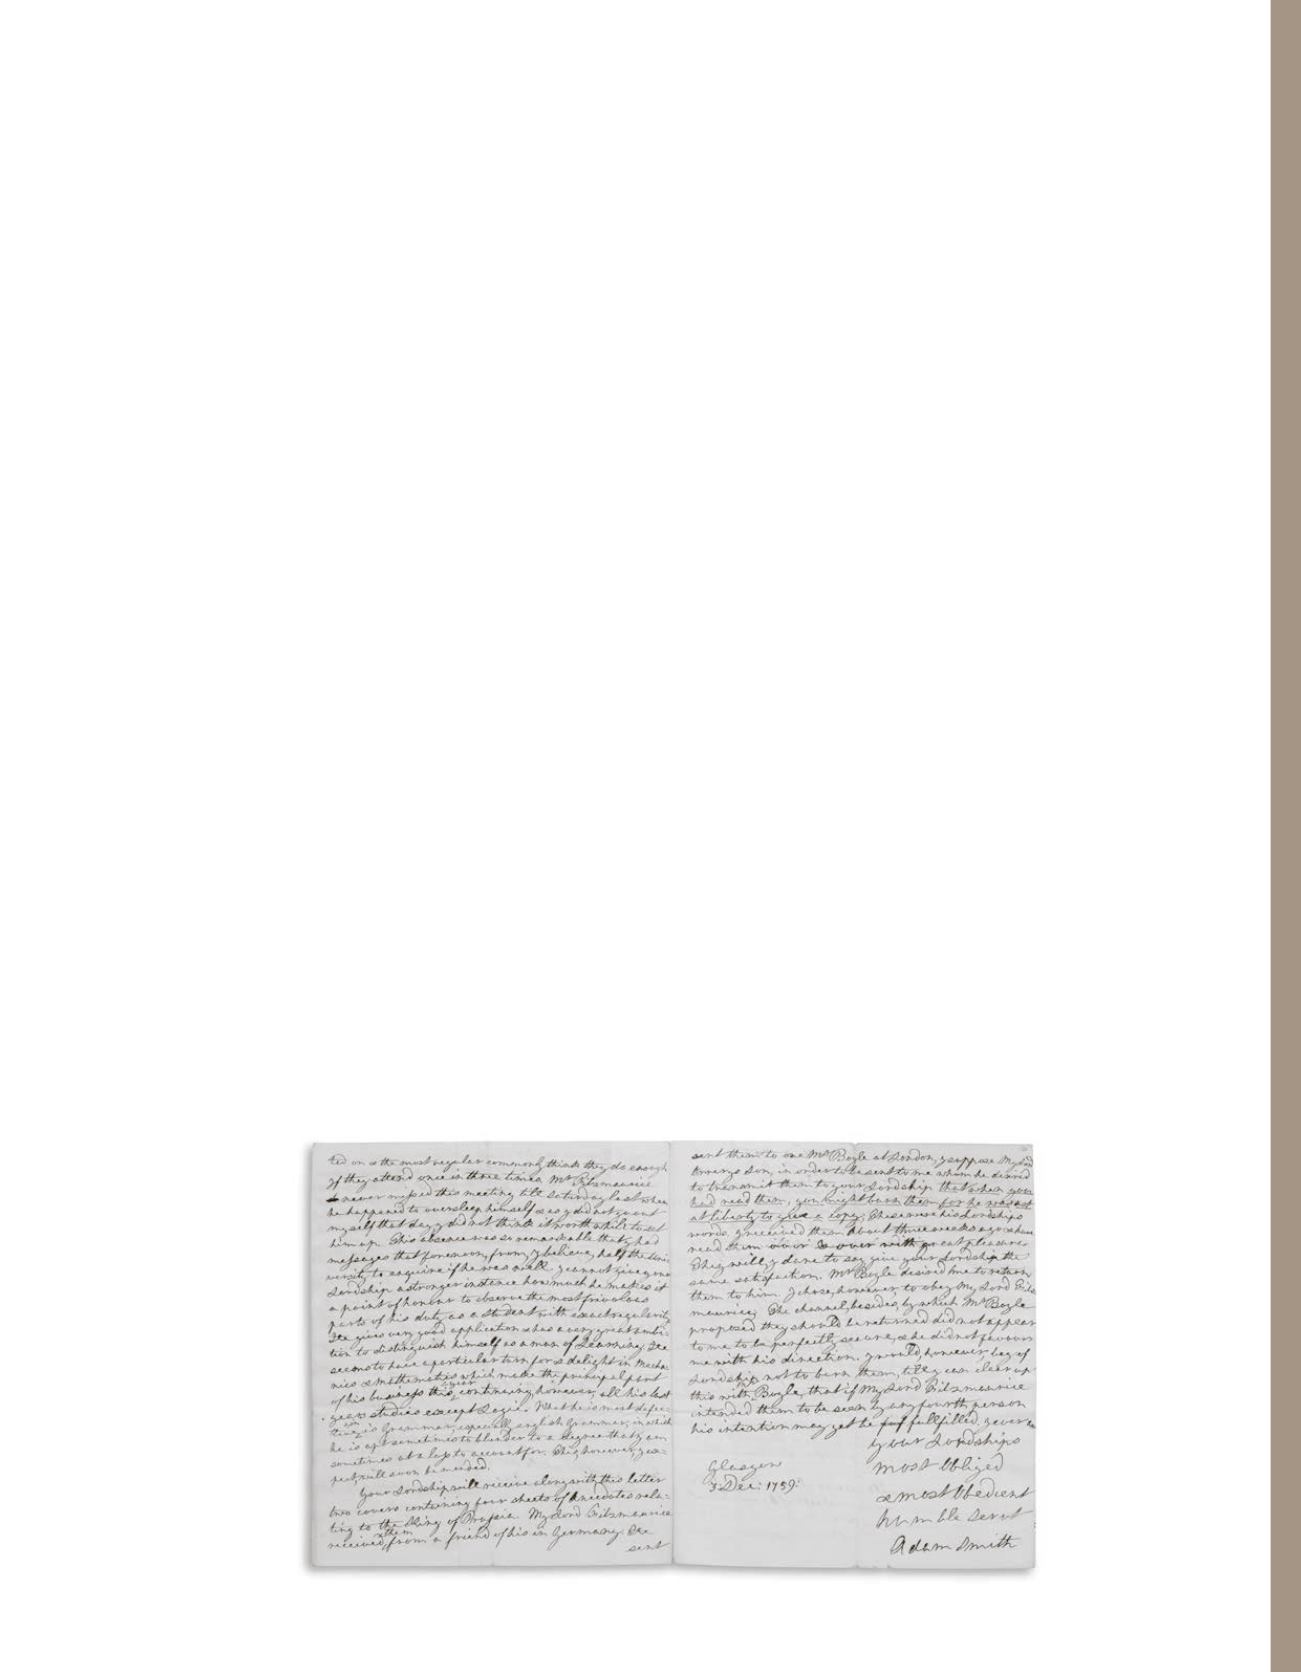 ted on & the most regular commonly think they do enough
if they attend once in three times. Mr Fitzmaurice
never missed this meeting till Saturday last when
he happened to oversleep himself & as I did not go out
myself that day I did not think it worth while to set
him up. This absence was so remarkable that I had
messages that forenoon, from, I believe, half the Uni-
versity to enquire if he was well. I cannot give your
Lordship a stronger instance how much he makes it
a point of honour to observe the most frivolous
parts of his duty as a student with exact regularity.
He gives very good application & has a very great ambi-
tion to distinguish himself as a man of Learning. He
seems to have a particular turn for & delight in Mecha-
nics & mathematics which make the principal part
of his business this year, continuing, however, all his last
years studies except Logic. What he is most defec-
tive in is Grammar, especially english Grammar, in which
he is apt sometimes to blunder to a degree that I am
sometimes at a loss to account for. This, however, I ex-
pect, will soon be mended.
Your Lordship will receive along with this letter
two covers containing four sheets of Anecdotes rela-
ting to the King of Prussia. My Lord Fitzmaurice
received them from a friend of his in Germany. He
sent
sent them to one Mr Boyle at London, I suppose My Lord
Orrerys Son, in order to be sent to me whom he desired
to transmit them to your Lordship that when you
had read them, you might burn them for he was not
at liberty to give a copy. These were his Lordships
words. I received them about three weeks ago & have
read them over & over with great pleasure.
They will, I dare to say give your Lordship the
same satisfaction. Mr Boyle desired me to return
them to him. I chose, however, to obey My Lord Fitz-
maurice. The channel, besides, by which Mr Boyle
proposed they should be returned did not appear
to me to be perfectly secure, & he did not favour
me with his direction. I would, however, beg of
Lordship not to burn them, till I can clear up
this with Mr Boyle, that if My Lord Fitzmaurice
intended them to be seen by any fourth person
his intention may yet be fulfilled. I ever am
Your Lordships
most Obliged
& most Obedient
humble servt
Adam Smith
Glasgow
3 Dec: 1759: